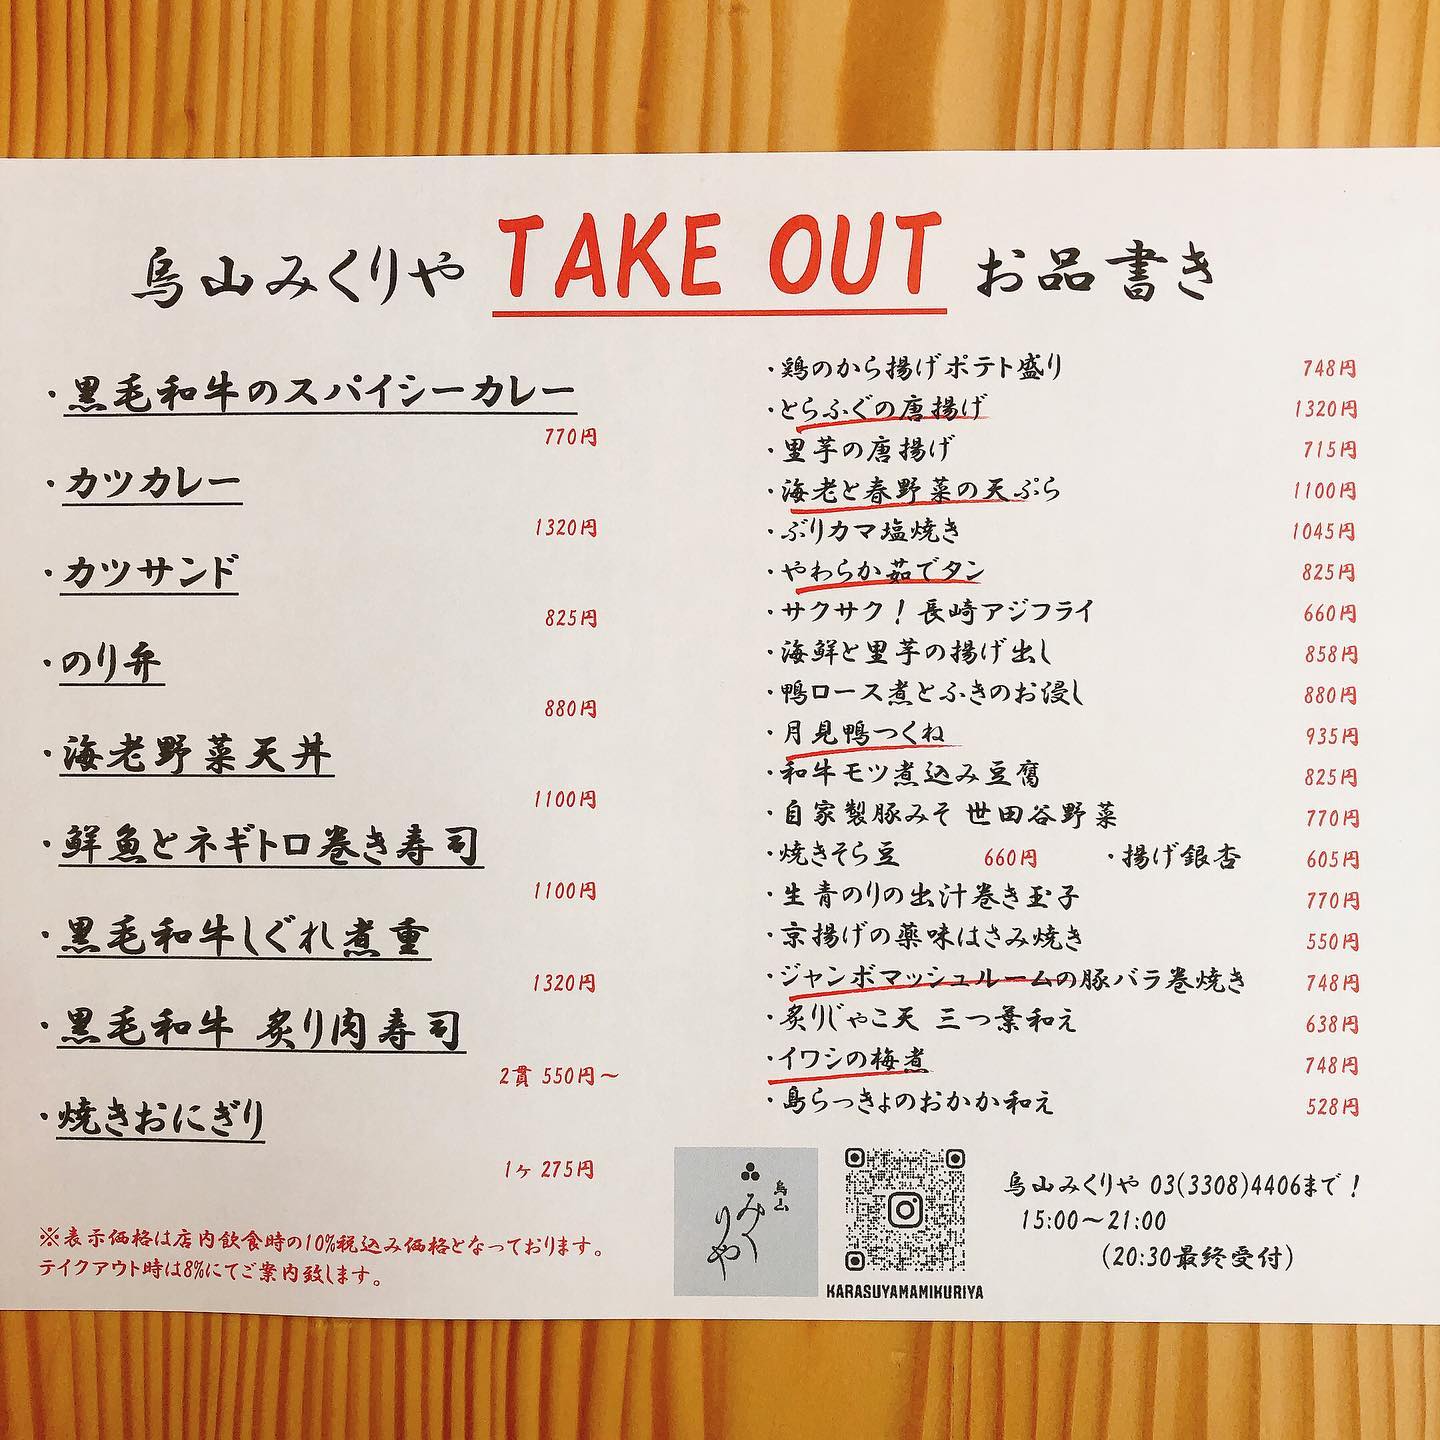 烏山みくりや TAKE OUT お品書き
・黒毛和牛のスパイシーカレー
770円
・カツカレー
1320円
・カツサンド
825円
・のり弁
880円
・海老野菜天丼
1100円
・鮮魚とネギトロ巻き寿司
1100円
・黒毛和牛しぐれ煮重
1320円
・黒毛和牛 炙り肉寿司
2貫 550円〜
・焼きおにぎり
1ヶ 275円
※表示価格は店内飲食時の10%税込み価格となっております。
テイクアウト時は8%にてご案内致します。
・鶏のから揚げポテト盛り 748円
・とらふぐの唐揚げ 1320円
・里芋の唐揚げ 715円
・海老と春野菜の天ぷら 1100円
・ぶりカマ塩焼き 1045円
・やわらか茹でタン 825円
・サクサク！長崎アジフライ 660円
・海鮮と里芋の揚げ出し 858円
・鴨ロース煮とふきのお浸し 880円
・月見鴨つくね 935円
・和牛モツ煮込み豆腐 825円
・自家製豚みそ 世田谷野菜 770円
・焼きそら豆 660円 ・揚げ銀杏 605円
・生青のりの出汁巻き玉子 770円
・京揚げの薬味はさみ焼き 550円
・ジャンボマッシュルームの豚バラ巻焼き 748円
・炙りじゃこ天 三つ葉和え 638円
・イワシの梅煮 748円
・島らっきょのおかか和え 528円
烏山
みくりや
KARASUYAMAMIKURIYA
烏山みくりや 03(3308)4406まで！
15:00〜21:00
(20:30最終受付)